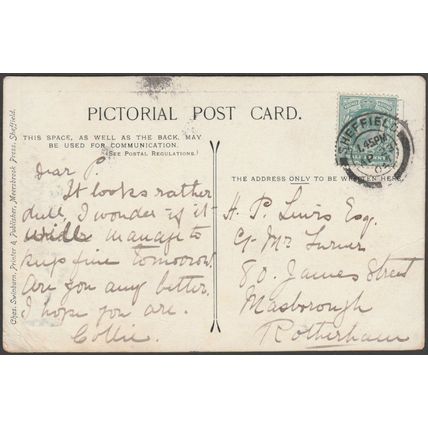 PICTORIAL POST CARD.
THIS SPACE, AS WELL AS THE BACK, MAY
BE USED FOR COMMUNICATION.
(SEE POSTAL REGULATIONS.)
THE ADDRESS ONLY TO BE WRITTEN HERE.
Chas. Swinburn, Printer & Publisher, Meersbrook Press, Sheffield.
SHEFFIELD
1.45PM
Dear P
It looks rather
dull, I wonder if it
will manage to
keep fine tomorrow.
Are you any better.
I hope you are.
Collie.
H. P. Lewis Esq.
C/o Mr Turner
80 James Street
Masborough
Rotherham